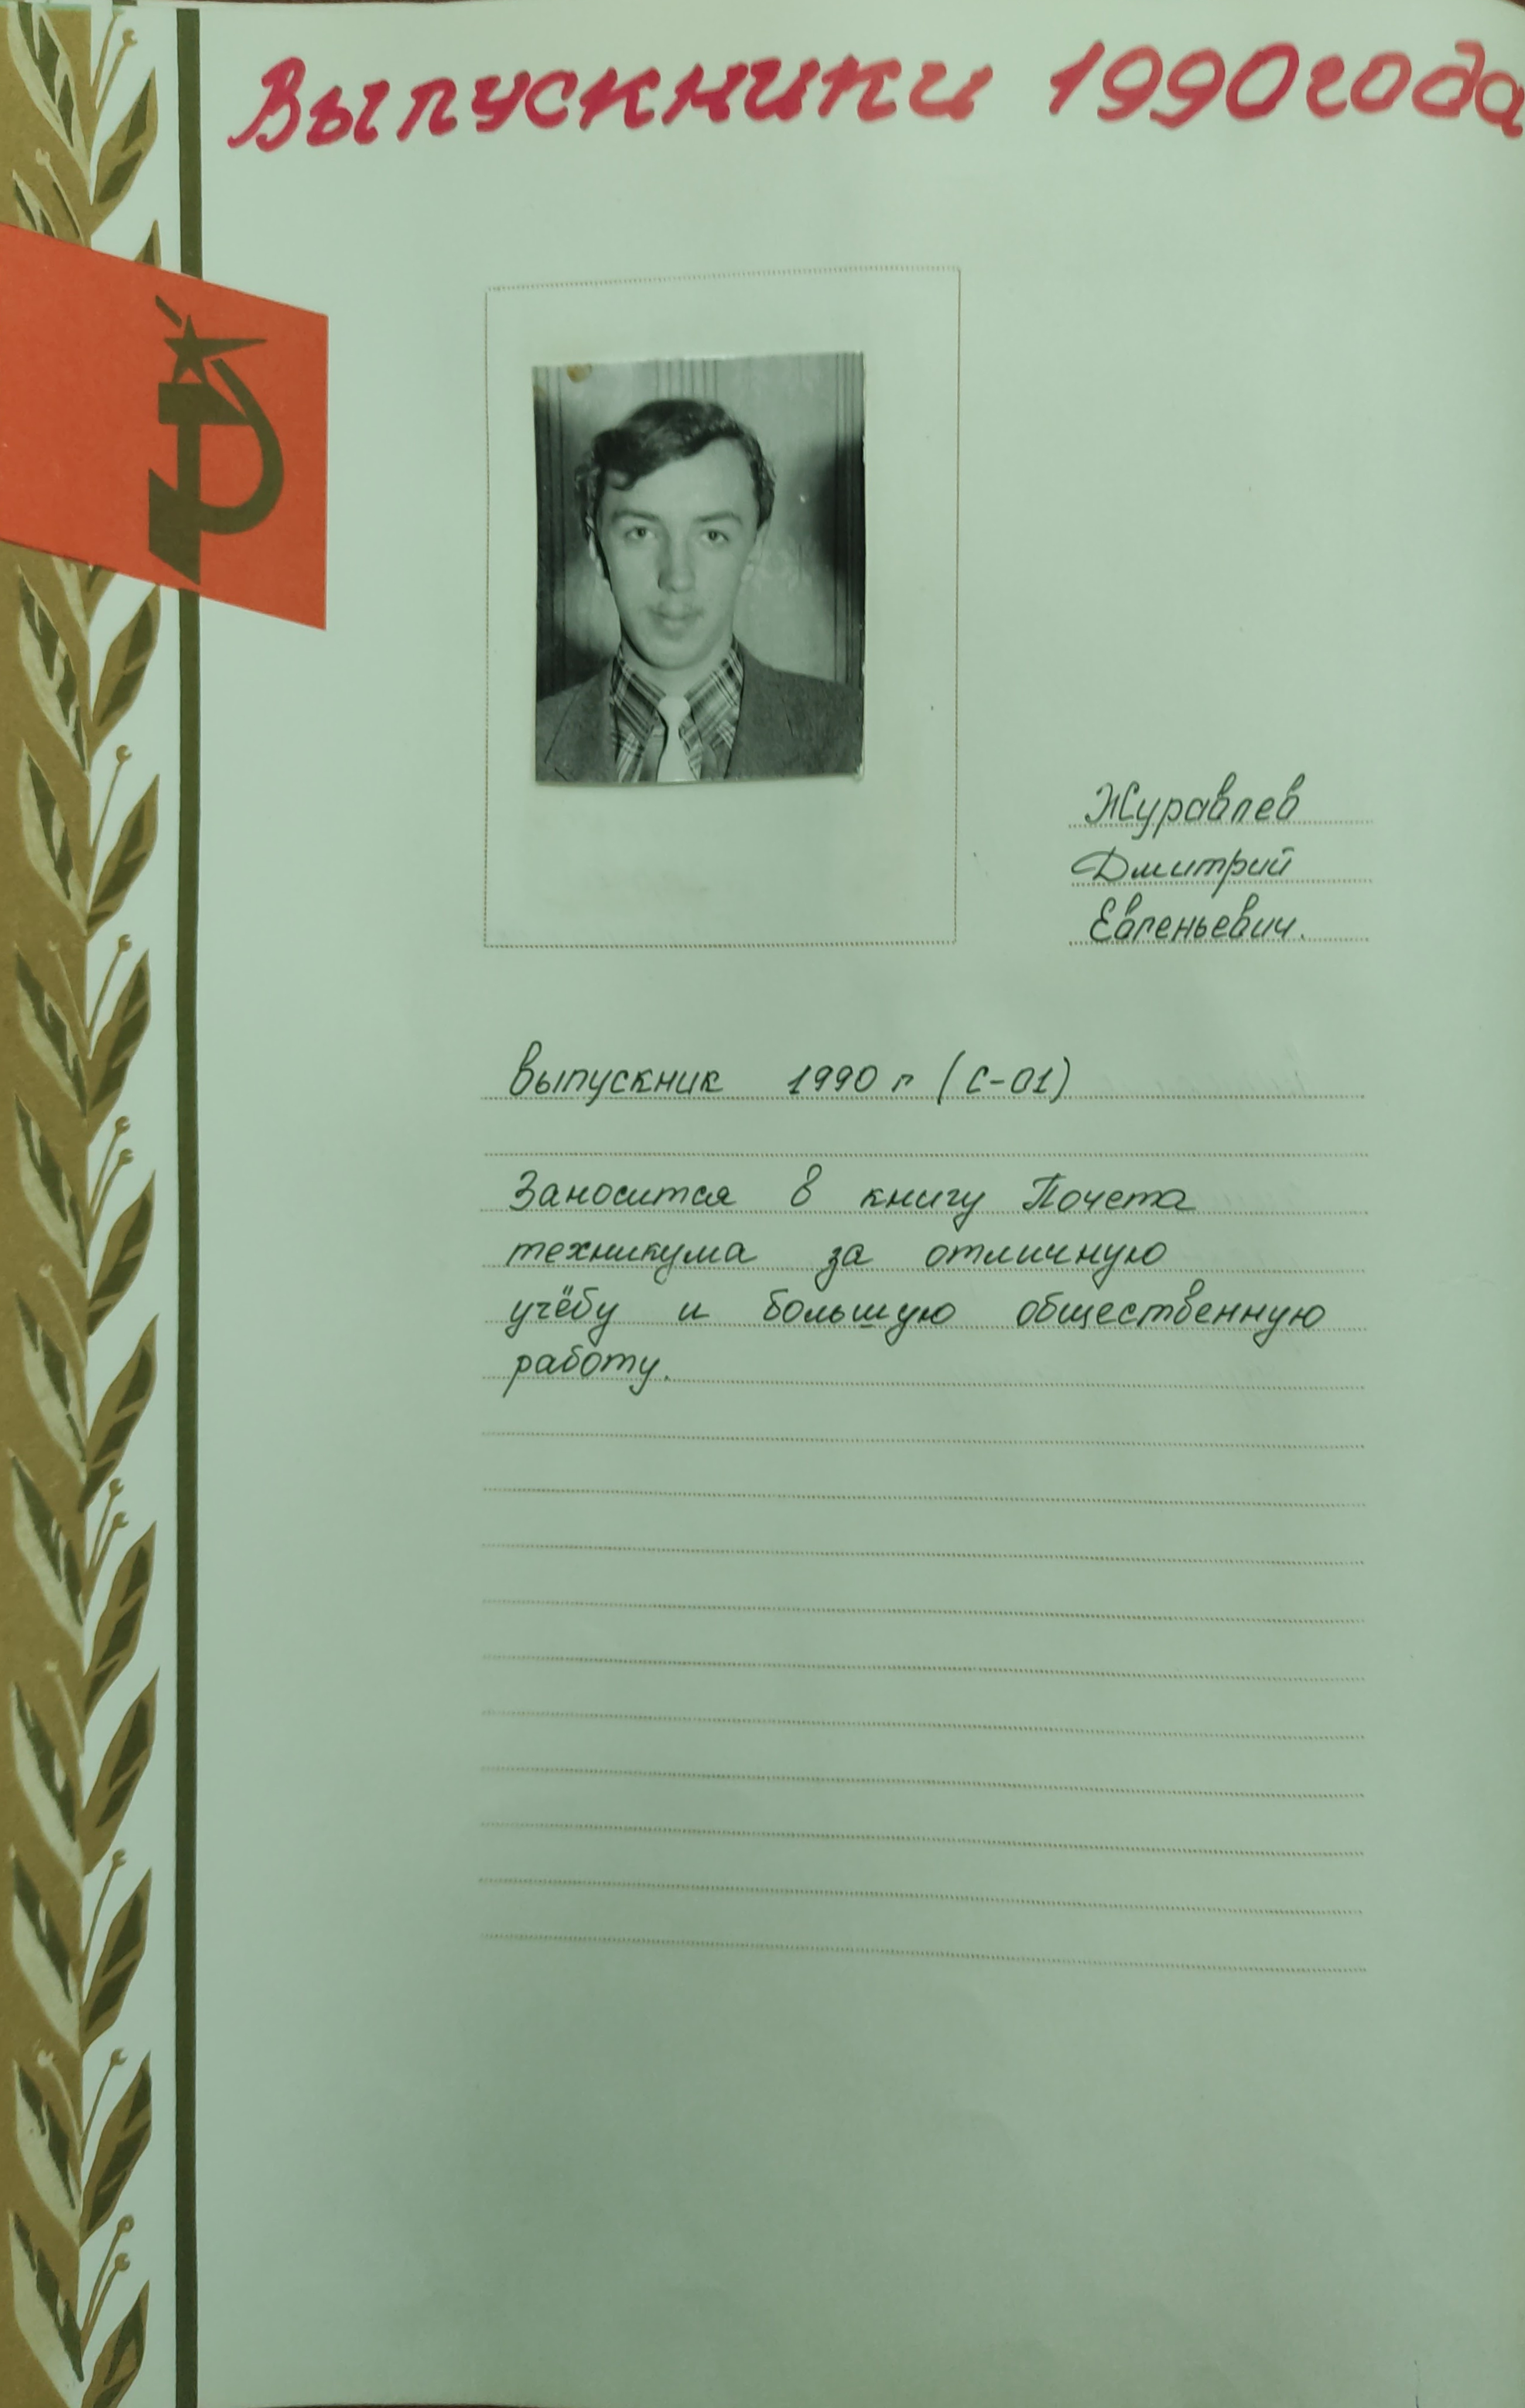 Выпускники 1990 года
Журавлев
Дмитрий
Евгеньевич.
Выпускник 1990 г (С-01)
Заносится в книгу Почета
техникума за отличную
учёбу и большую общественную
работу.